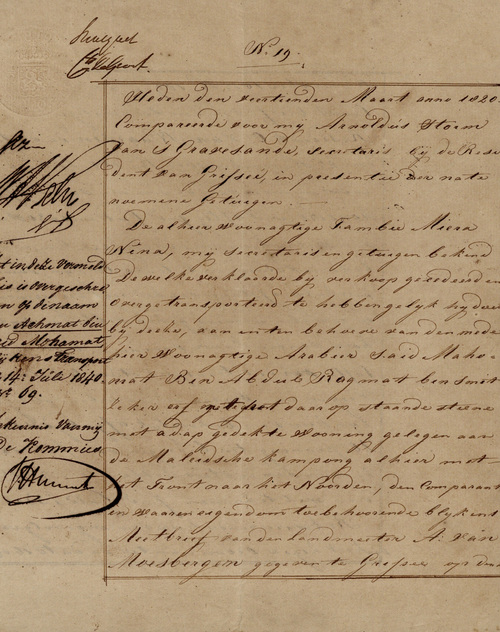 No. 19.
Heden den veertienden Maart anno 1820
Compareerde voor my Arnoldus Storm
van 's Gravesande, secretaris by de Resi
dent van Grissee, in presentie der nate
noemene Getuigen.
De alhier woonagtige Familie Miera
Nina, my secretaris en getuigen bekend
De welke verklaarde by verkoop gecedeerd en
Overgetransporteerd te hebben gelyk hy dwe
by deese, aan en ten behoeve van den mede
hier Woonagtige Arabier Said Maho
mat Ben Abdul Rogmat ben Smit
seker erf met daar op staande steene
met adap gedekte Wooning gelegen aan
de Maleidsche kampong alhier met
het Front naar het Noorden, den Comparant
in waaren eigendom toebehoorende blykens
Meetbrief van den landmeeter A: van
Moesbergen gegeven te Grissee op den
t in deze Vermeld
is overgeschre
n op de naam
Achmat bin
Mohamat
Transport
14 Julie 1840
No. 69.
kennis van my
De Commies